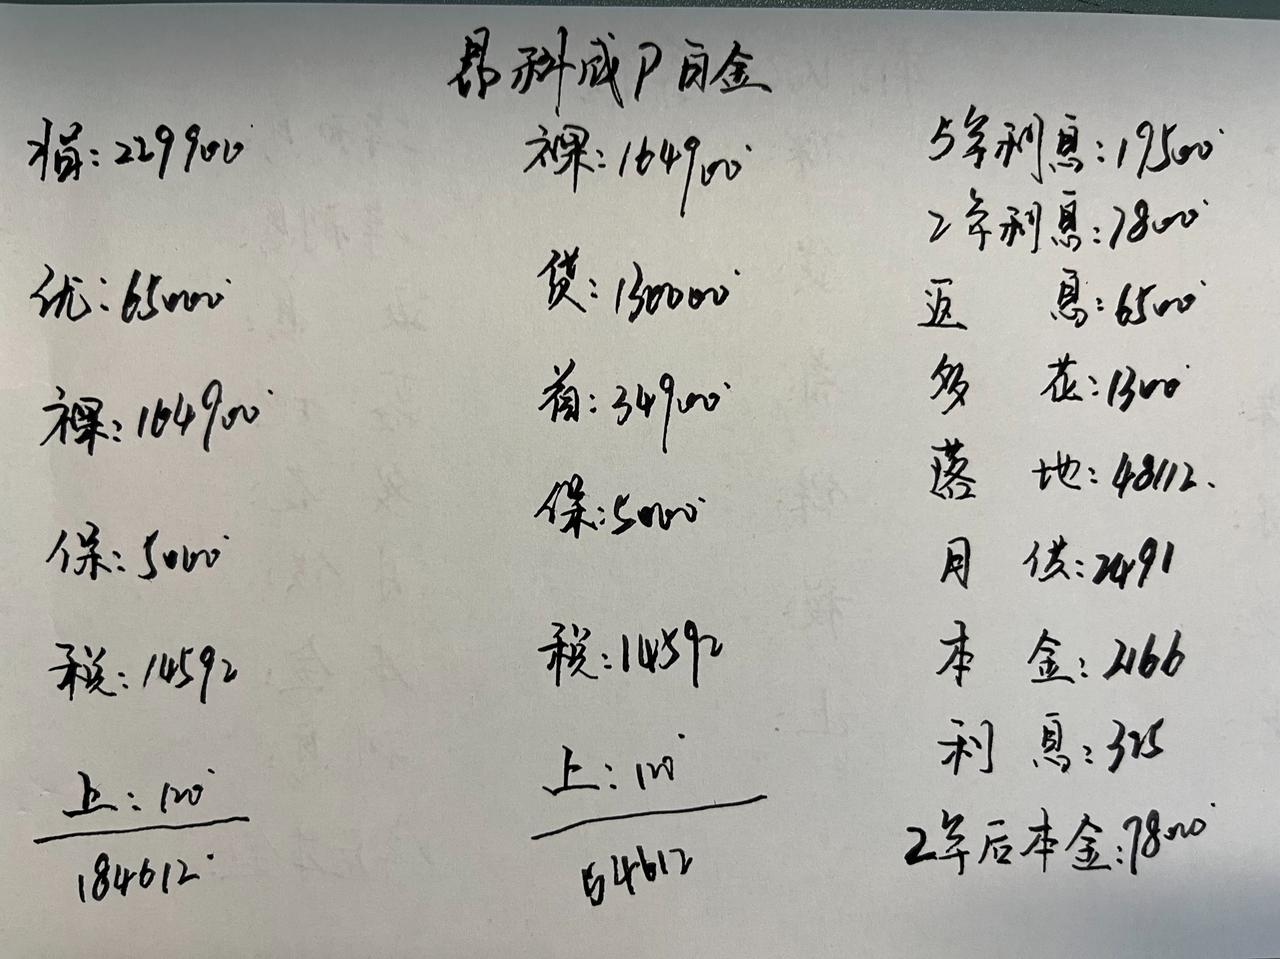 昂科威P白金
指:229900
优:65000
裸:164900
保:5000
税:14592
上:120
184612
裸:164900
贷:130000
首:34900
保:5000
税:14592
上:120
54612
5年利息:19500
2年利息:7800
返 息:6500
多 花:1300
落 地:48112.
月 供:2491
本 金:2166
利 息:325
2年后本金:78000